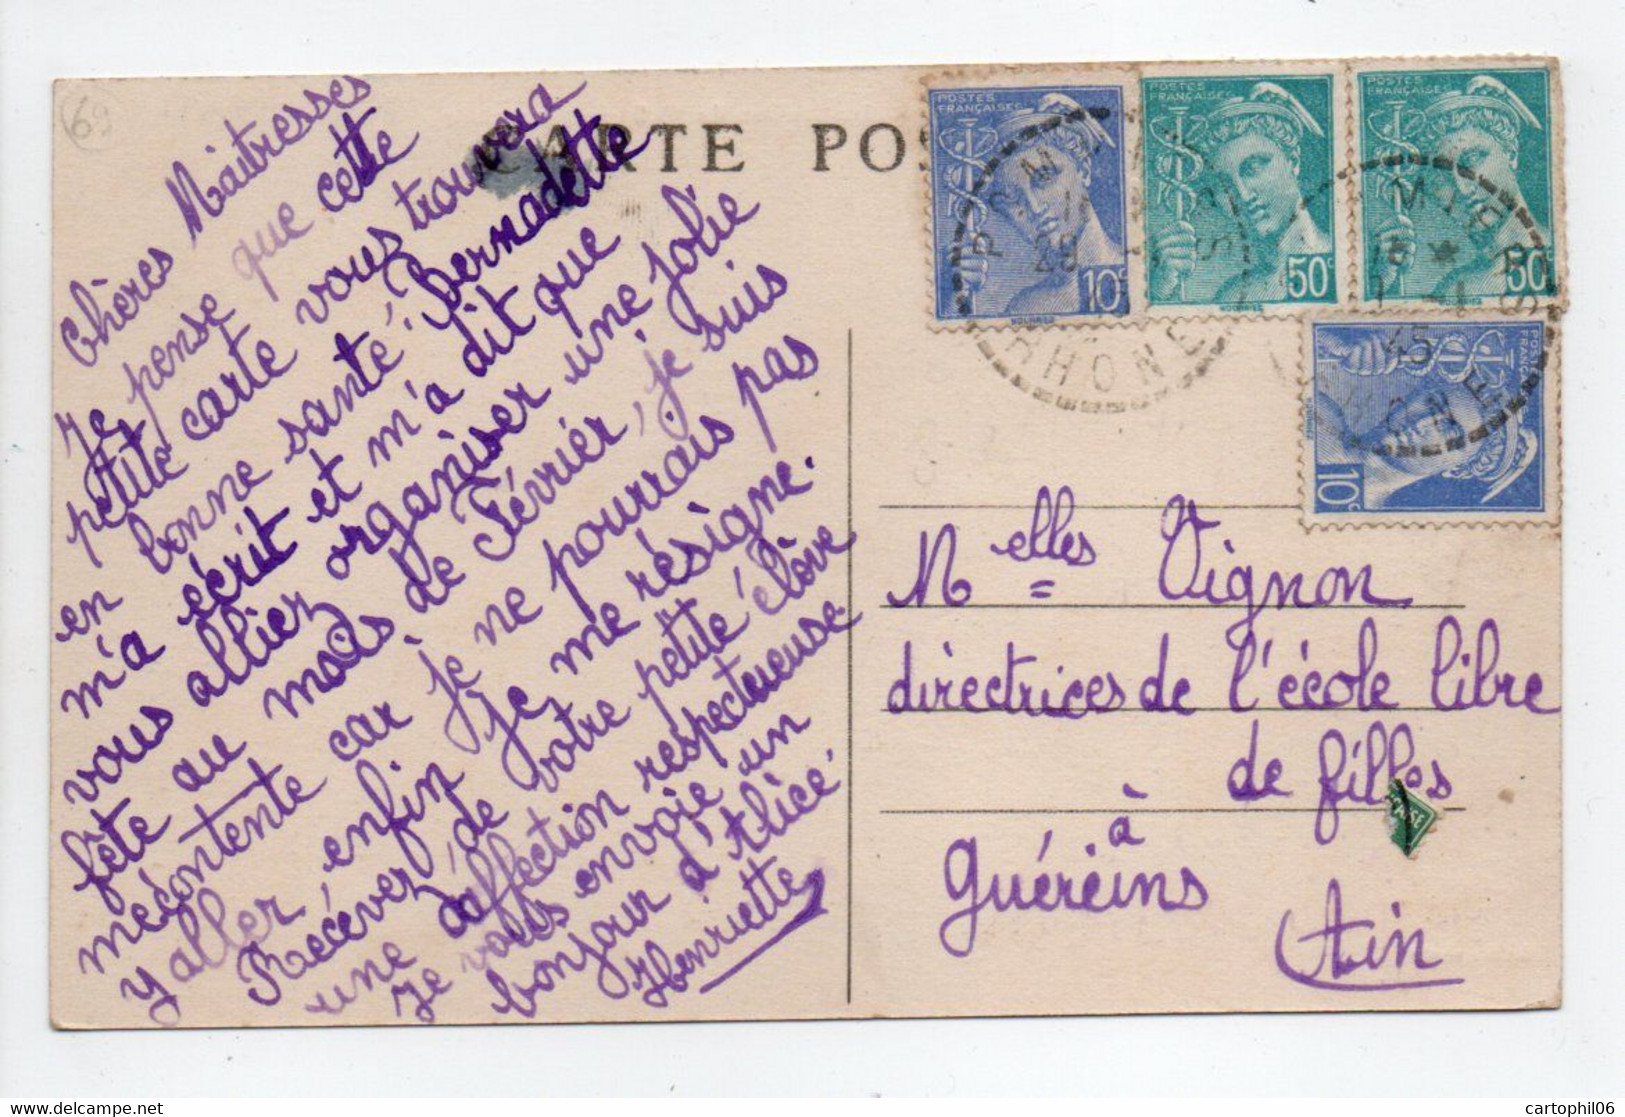 69
CARTE POS
Chères Maîtresses
Je pense que cette
petite carte vous trouvera
en bonne santé, bernadette
m'a écrit et m'a dit que
vous alliez organiser une jolie
fête au mois de Février, je suis
mécontente car je ne pourrais pas
y aller enfin je me résigne.
Recevez de votre petite élève
une affection respectueuse
Je vous envoie un
bonjour d'Alice.
Henriette
POSTES FRANÇAISES
10c
POSTES FRANÇAISES
50c
POSTES FRANÇAISES
50c
POSTES FRANÇAISES
10c
RHONE
45
Melles Vignon
directrices de l'école libre
de filles
à
Guéreins
Ain
cartophil06